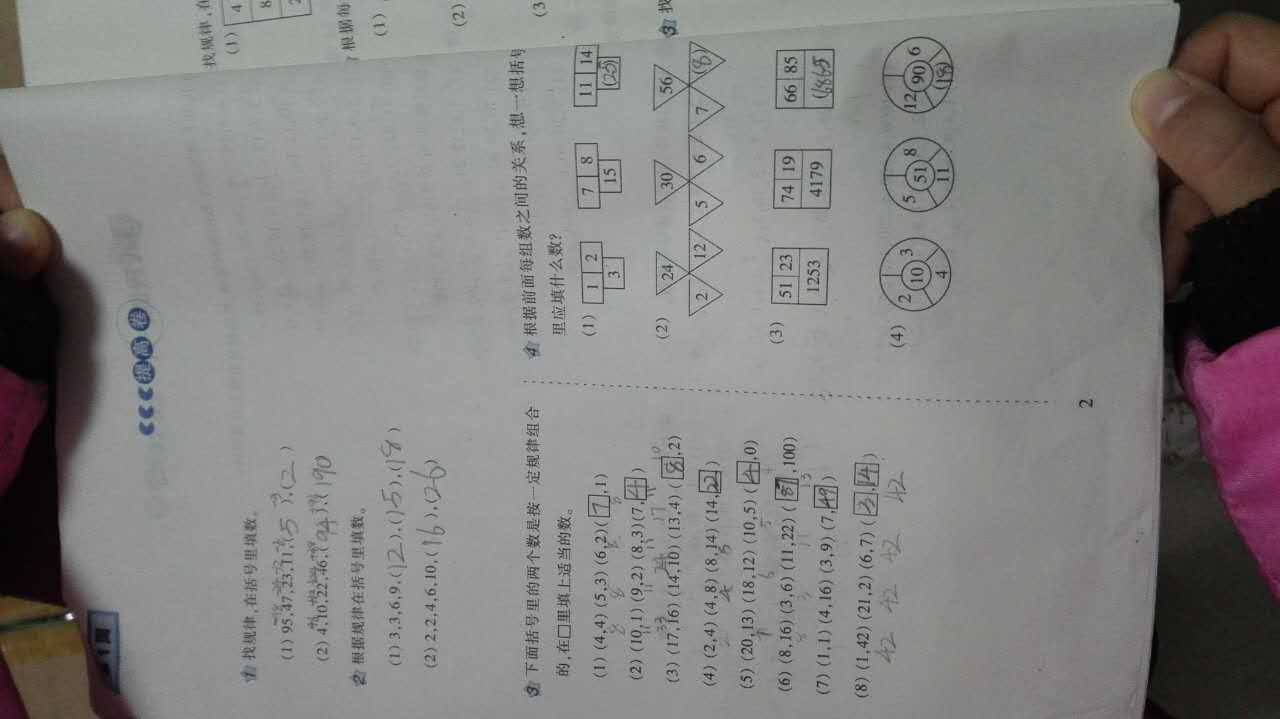 提高卷
1 找规律,在括号里填数。
(1) 95,47,23,11,(5),(2)
(2) 4,10,22,46,(94),190
2 根据规律在括号里填数。
(1) 3,3,6,9,(12),(15),(18)
(2) 2,2,4,6,10,(16),(26)
3 下面括号里的两个数是按一定规律组合
的,在□里填上适当的数。
(1) (4,4) (5,3) (6,2) (7,1)
(2) (10,1) (9,2) (8,3) (7,4)
(3) (17,16) (14,10) (13,4) (8,2)
(4) (2,4) (4,8) (8,14) (14,22)
(5) (20,13) (18,12) (10,5) (4,0)
(6) (8,16) (3,6) (11,22) (87,100)
(7) (1,1) (4,16) (3,9) (7,49)
(8) (1,42) (21,2) (6,7) (3,14)
42 42 42 42
4 根据前面每组数之间的关系,想一想括号
里应填什么数?
(1) 1 2 3 7 8 15 11 14 (25)
(2) 24 30 56
2 12 5 6 7 (8)
(3) 51 23 74 19 66 85
1253 4179 (6865)
(4) 2 3 10 4 5 8 51 11 12 6 90 (18)
2
找规律,在
(1) 4
8
2
根据每
(1)
(2)
(3
3 找